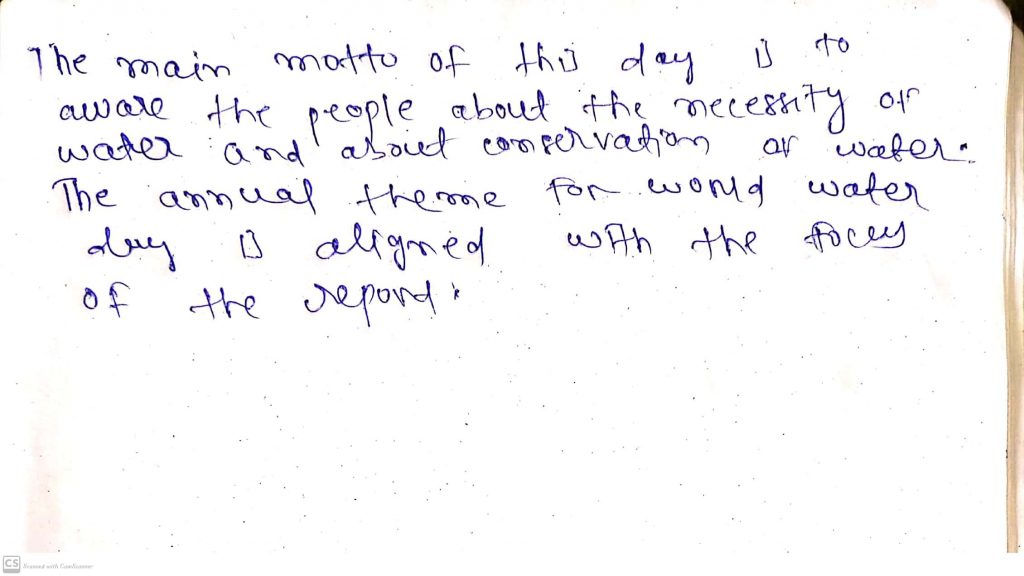 The main motto of this day is to
aware the people about the necessity of
water and about conservation of water.
The annual theme for world water
day is aligned with the focus
of the report.
CS Scanned with CamScanner